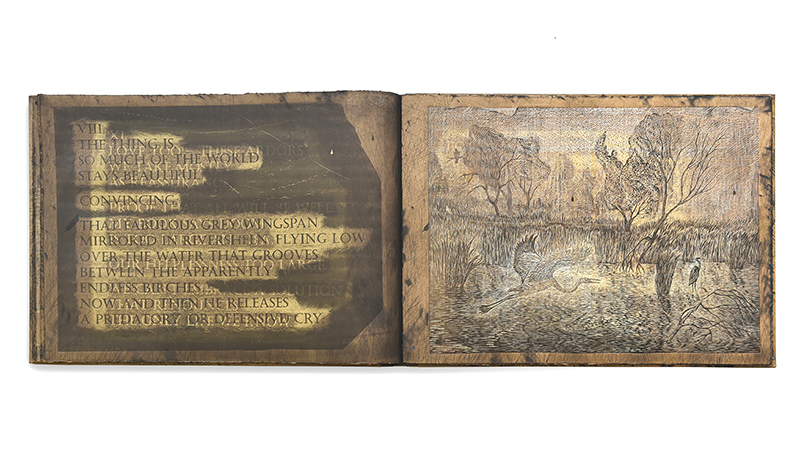 VIII
THE THING IS
SO MUCH OF THE WORLD
STAYS BEAUTIFUL,
CONVINCING,
THAT FABULOUS GREY WINGSPAN
MIRRORED IN RIVERSHEEN, FLYING LOW
OVER THE WATER THAT GROOVES
BETWEEN THE APPARENTLY
ENDLESS BIRCHES.
NOW AND THEN HE RELEASES
A PREDATORY (OR DEFENSIVE) CRY